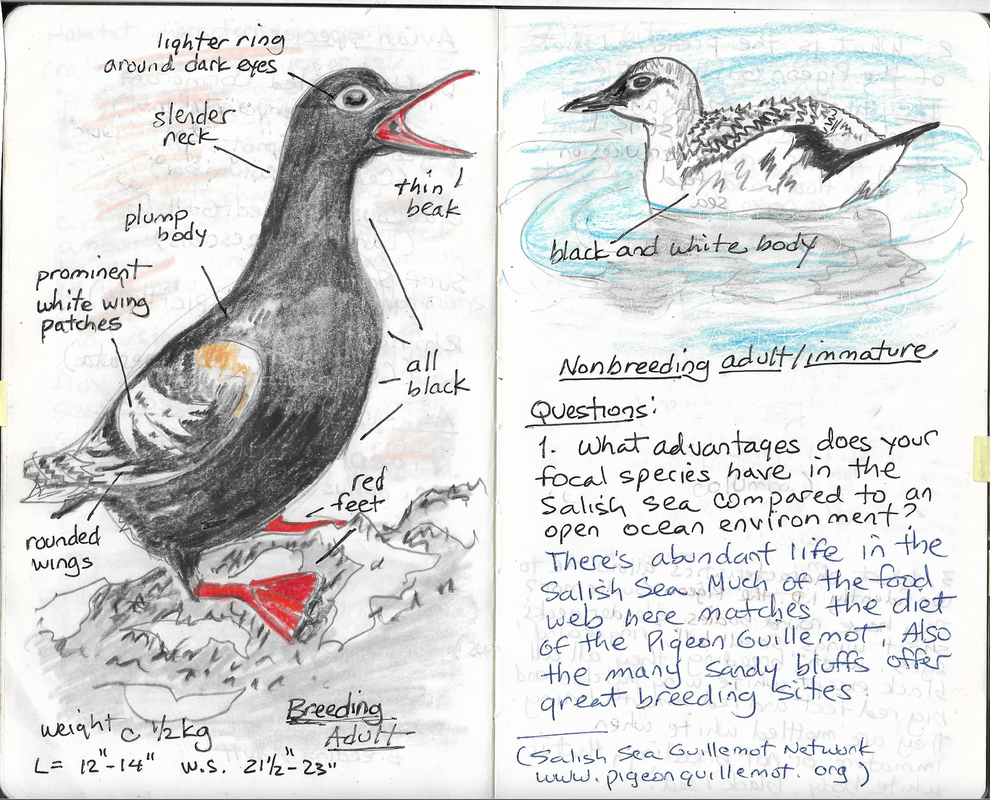 lighter ring
around dark eyes
slender
neck
thin
beak
plump
body
prominent
white wing
patches
all
black
red
feet
rounded
wings
Breeding
Adult
weight c 1/2 kg
L= 12"-14" w.s. 21 1/2"-23"
black and white body
Nonbreeding adult/immature
Questions:
1. What advantages does your
focal species have in the
Salish Sea compared to an
open ocean environment?
There's abundant life in the
Salish Sea. Much of the food
web here matches the diet
of the Pigeon Guillemot. Also
the many sandy bluffs offer
great breeding sites.
(Salish Sea Guillemot Network
www.pigeonguillemot.org)